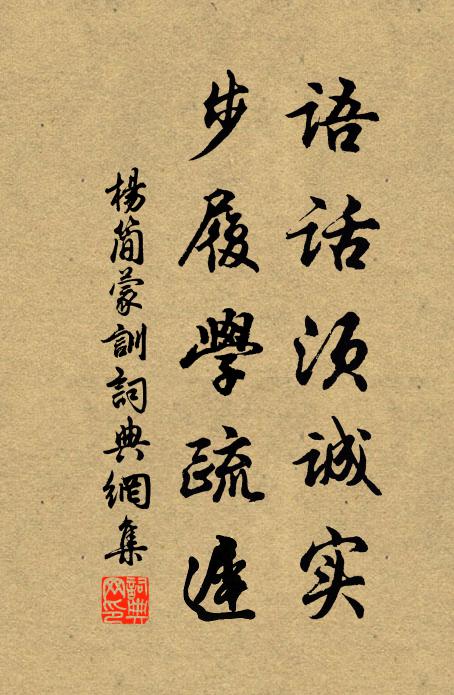 语话须诚实
步履学疏迟
杨简蒙訓詞典網集
詞典网印